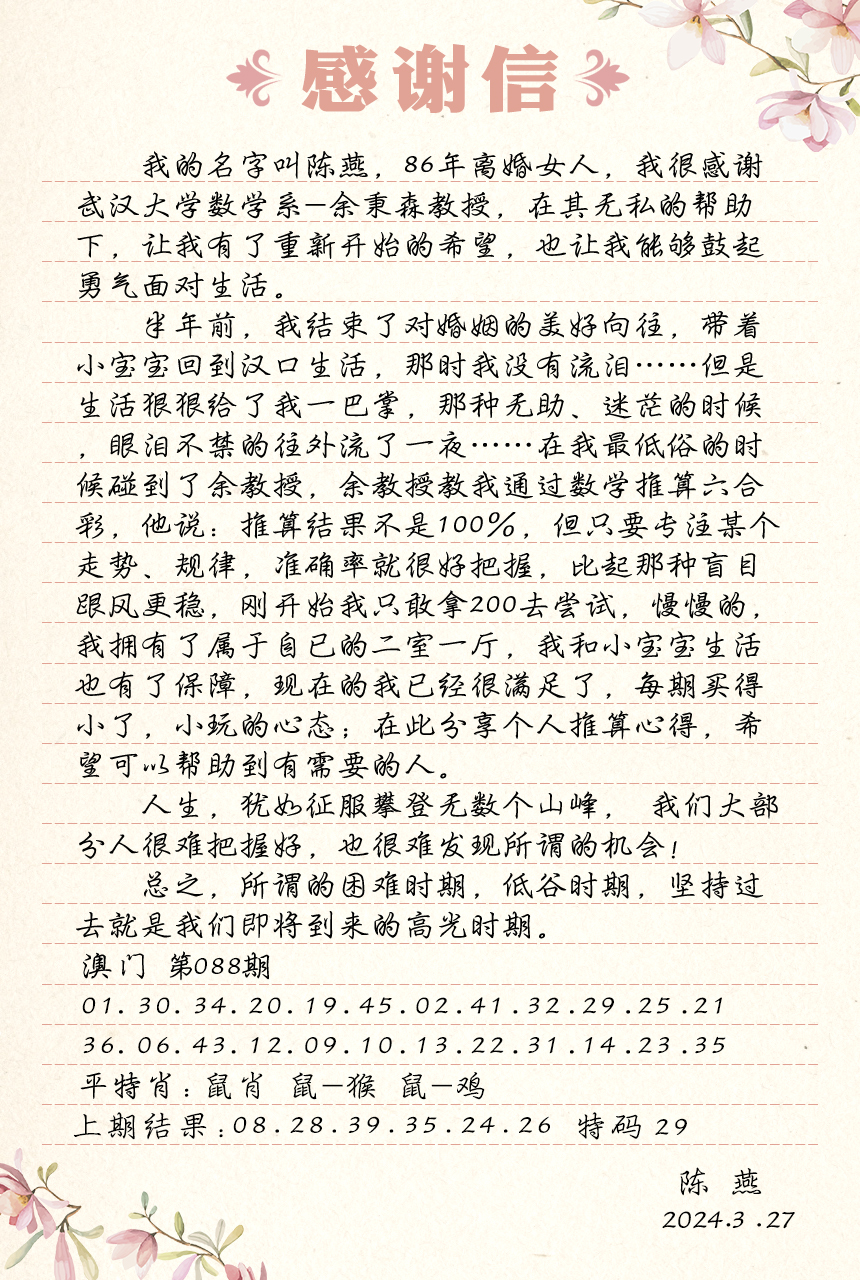 感谢信
我的名字叫陈燕，86年离婚女人，我很感谢
武汉大学数学系—余秉森教授，在其无私的帮助
下，让我有了重新开始的希望，也让我能够鼓起
勇气面对生活。
半年前，我结束了对婚姻的美好向往，带着
小宝宝回到汉口生活，那时我没有流泪……但是
生活狠狠给了我一巴掌，那种无助、迷茫的时候
，眼泪不禁的往外流了一夜……在我最低俗的时
候碰到了余教授，余教授教我通过数学推算六合
彩，他说：推算结果不是100%，但只要专注某个
走势、规律，准确率就很好把握，比起那种盲目
跟风更稳，刚开始我只敢拿200去尝试，慢慢的，
我拥有了属于自已的二室一厅，我和小宝宝生活
也有了保障，现在的我已经很满足了，每期买得
小了，小玩的心态；在此分享个人推算心得，希
望可以帮助到有需要的人。
人生，犹如征服攀登无数个山峰， 我们大部
分人很难把握好，也很难发现所谓的机会！
总之，所谓的困难时期，低谷时期，坚持过
去就是我们即将到来的高光时期。
澳门 第088期
01.30.34.20.19.45.02.41.32.29.25.21
36.06.43.12.09.10.13.22.31.14.23.35
平特肖：鼠肖 鼠—猴 鼠—鸡
上期结果：08.28.39.35.24.26 特码 29
陈 燕
2024.3.27